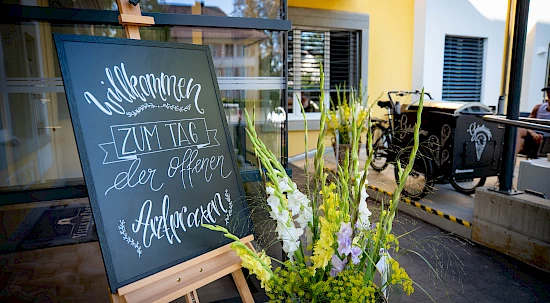 Willkommen
ZUM TAG
der offenen
Arztpraxen